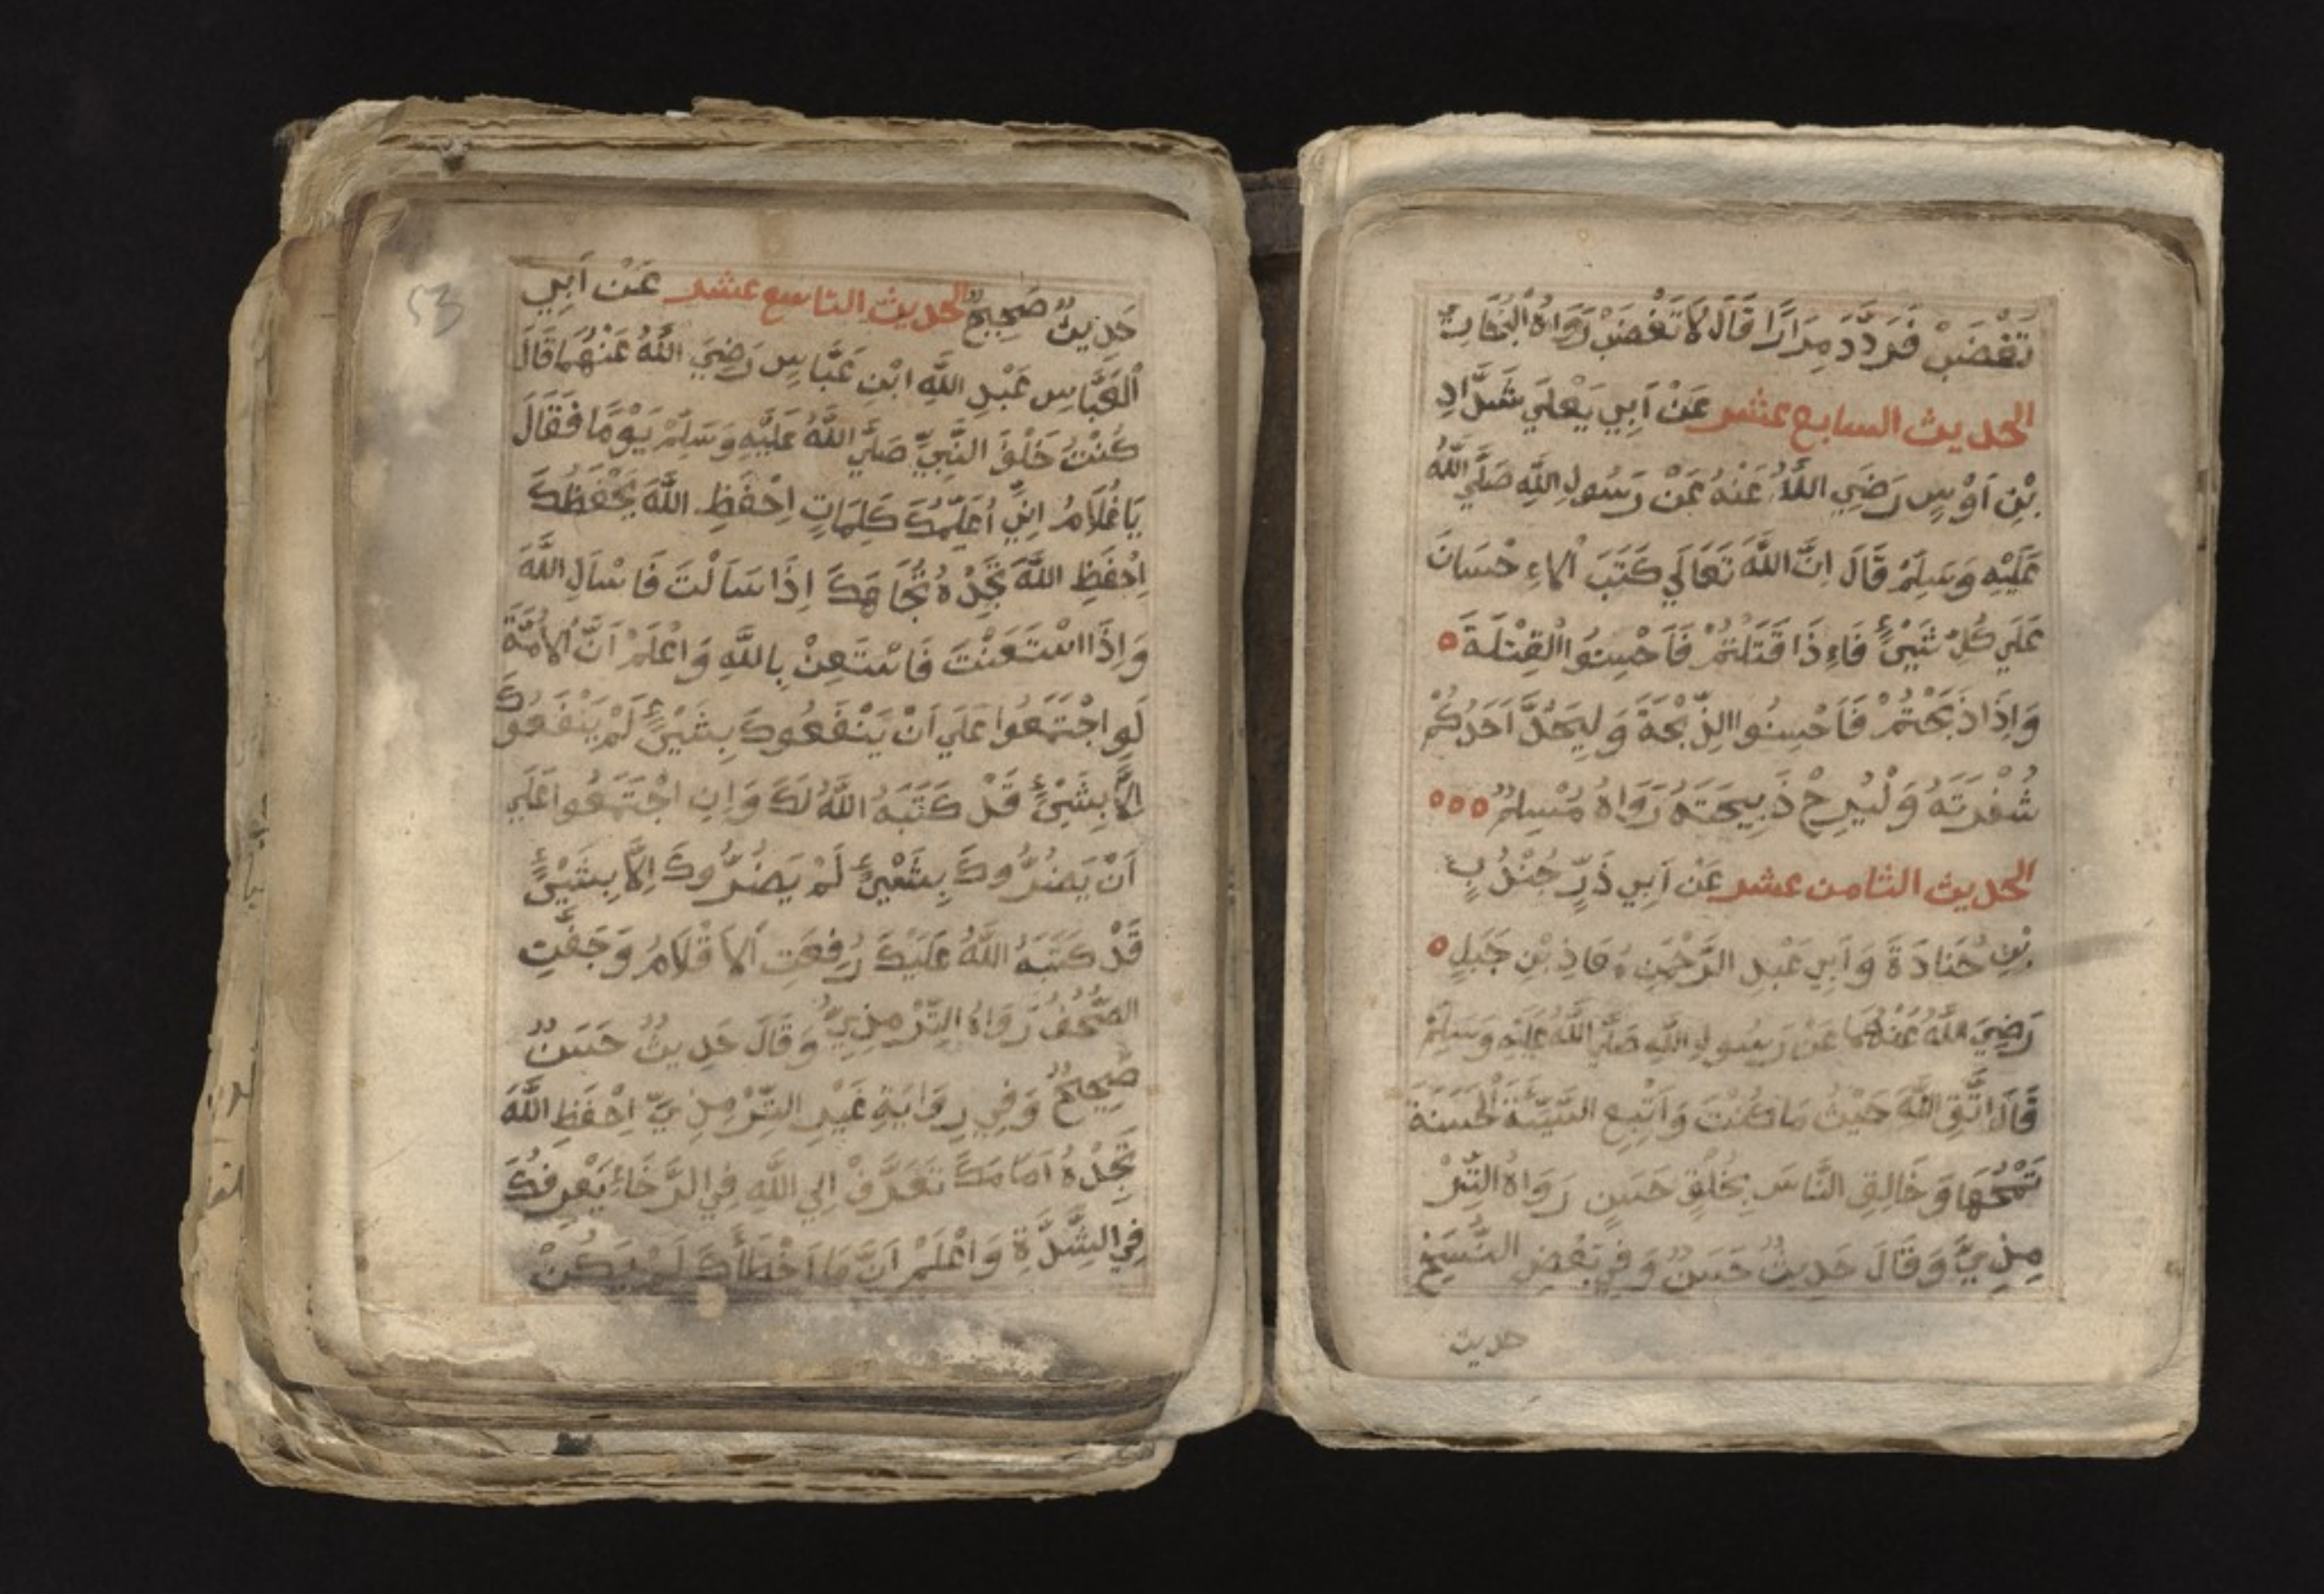 تَغْضَبْ فَرَدَّدَ مِرَارًا قَالَ لَا تَغْضَبْ رَوَاهُ الْبُخَارِيُّ
الحديث السابع عشر عَنْ اَبِي يَعْلَي شَدَّادِ
بْنِ اَوْسٍ رَضِيَ اللَّهُ عَنْهُ عَنْ رَسُولِ اللَّهِ صَلَّي اللَّهُ
عَلَيْهِ وَسَلَّمْ قَالَ اِنَّ اللَّهَ تَعَالَي كَتَبَ الْاءِحْسَانَ
عَلَي كُلِّ شَيْئٍ فَاءِذَا قَتَلْتُمْ فَاَحْسِنُوا الْقِتْلَةَ
وَاِذَا ذَبَحْتُمْ فَاَحْسِنُوا الذِّبْحَةَ وَلِيَحُدَّ اَحَدُكُمْ
شُفْرَتَهُ وَلْيُرِحْ ذَبِيحَتَهُ رَوَاهُ مُسْلِمٌ
الحديث الثامن عشر عَنْ اَبِي ذَرٍّ جُنْدُبِ
بْنِ جُنَادَةَ وَاَبِي عَبْدِ الرَّحْمٰنِ مُعَاذِ بْنِ جَبَلٍ
رَضِيَ اللَّهُ عَنْهُمَا عَنْ رَسُولِ اللَّهِ صَلَّي اللَّهُ عَلَيْهِ وَسَلَّمْ
قَالَ اتَّقِ اللَّهَ حَيْثُ مَا كُنْتَ وَاَتْبِعِ السَّيِّئَةَ الْحَسَنَةَ
تَمْحُهَا وَخَالِقِ النَّاسَ بِخُلُقٍ حَسَنٍ رَوَاهُ التِّرْ
مِذِيُّ وَقَالَ حَدِيثٌ حَسَنٌ وَفِي بَعْضِ النُّسَخِ
حديث
53
حَدِيثٌ صَحِيحٌ الحديث التاسع عشر عَنْ اَبِي
الْعَبَّاسِ عَبْدِ اللَّهِ ابْنِ عَبَّاسٍ رَضِيَ اللَّهُ عَنْهُمَا قَالَ
كُنْتُ خَلْفَ النَّبِيِّ صَلَّي اللَّهُ عَلَيْهِ وَسَلَّمْ يَوْمًا فَقَالَ
يَا غُلَامُ اِنِّي اُعَلِّمُكَ كَلِمَاتٍ اِحْفَظِ اللَّهَ يَحْفَظْكَ
اِحْفَظِ اللَّهَ تَجِدْهُ تُجَاهَكَ اِذَا سَاَلْتَ فَاسْاَلِ اللَّهَ
وَاِذَا اسْتَعَنْتَ فَاسْتَعِنْ بِاللَّهِ وَاعْلَمْ اَنَّ الْاُمَّةَ
لَوِ اجْتَمَعُوا عَلَي اَنْ يَنْفَعُوكَ بِشَيْئٍ لَمْ يَنْفَعُوكَ
اِلَّا بِشَيْئٍ قَدْ كَتَبَهُ اللَّهُ لَكَ وَاِنِ اجْتَمَعُوا عَلَي
اَنْ يَضُرُّوكَ بِشَيْئٍ لَمْ يَضُرُّوكَ اِلَّا بِشَيْئٍ
قَدْ كَتَبَهُ اللَّهُ عَلَيْكَ رُفِعَتِ الْاَقْلَامُ وَجَفَّتِ
الصُّحُفُ رَوَاهُ التِّرْمِذِيُّ وَقَالَ حَدِيثٌ حَسَنٌ
صَحِيحٌ وَفِي رِوَايَةِ غَيْرِ التِّرْمِذِيِّ اِحْفَظِ اللَّهَ
تَجِدْهُ اَمَامَكَ تَعَرَّفْ اِلَي اللَّهِ فِي الرَّخَاءِ يَعْرِفُكَ
فِي الشِّدَّةِ وَاعْلَمْ اَنَّ مَا اَخْطَأَكَ لَمْ يَكُنْ